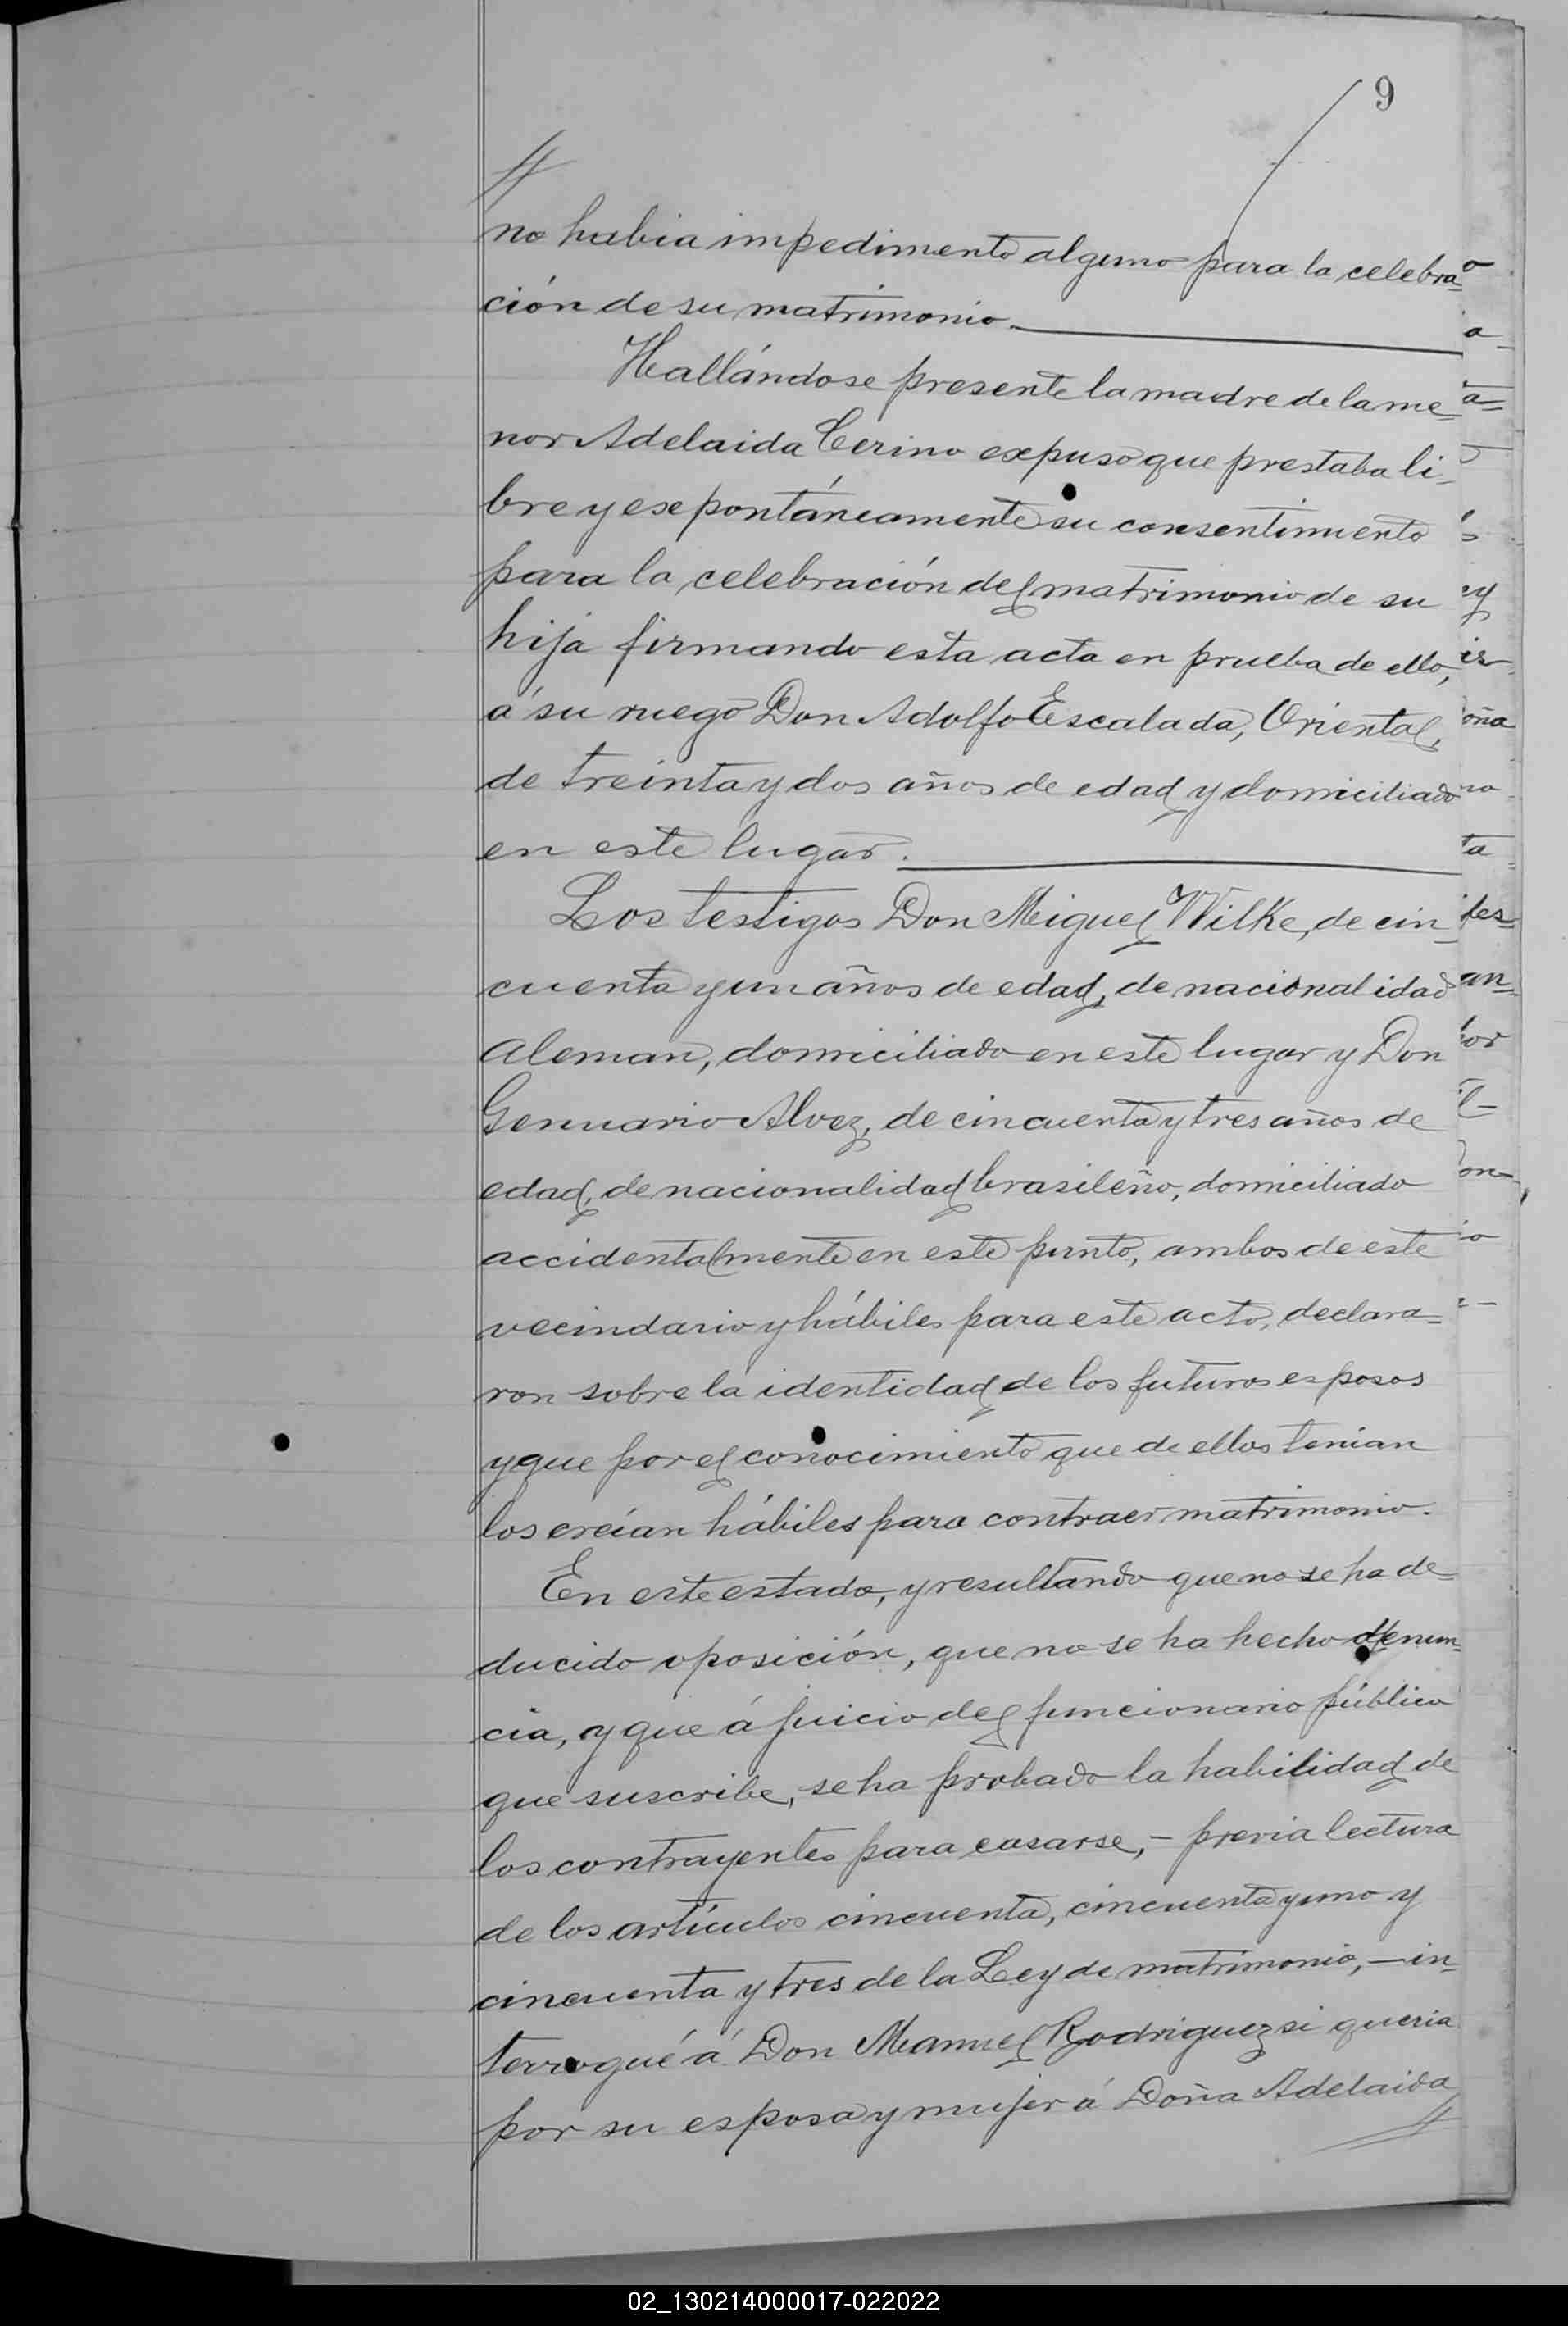 9
no habia impedimento alguno para la celebra=
ción de su matrimonio.
Hallándose presente la madre de la me=
nor Adelaida Cerino expuso que prestaba li=
bre y espontáneamente su consentimiento
para la celebración del matrimonio de su
hija firmando esta acta en prueba de ello,
á su ruego Don Adolfo Escalada, Oriental,
de treinta y dos años de edad y domiciliado
en este lugar.
Los testigos Don Miguel Wilke, de cin=
cuenta y un años de edad, de nacionalidad
aleman, domiciliado en este lugar y Don
Genuario Alvez, de cincuenta y tres años de
edad, de nacionalidad brasileño, domiciliado
accidentalmente en este punto, ambos de este
vecindario y hábiles para este acto, declara=
ron sobre la identidad de los futuros esposos
y que por el conocimiento que de ellos tenian
los creían hábiles para contraer matrimonio.
En este estado, y resultando que no se ha de=
ducido oposición, que no se ha hecho denun=
cia, y que á juicio del funcionario público
que suscribe, se ha probado la habilidad de
los contrayentes para casarse,- previa lectura
de los artículos cincuenta, cincuenta y uno y
cincuenta y tres de la Ley de matrimonio,- in=
terrogué á Don Manuel Rodriguez si queria
por su esposa y mujer á Doña Adelaida
02_130214000017-022022